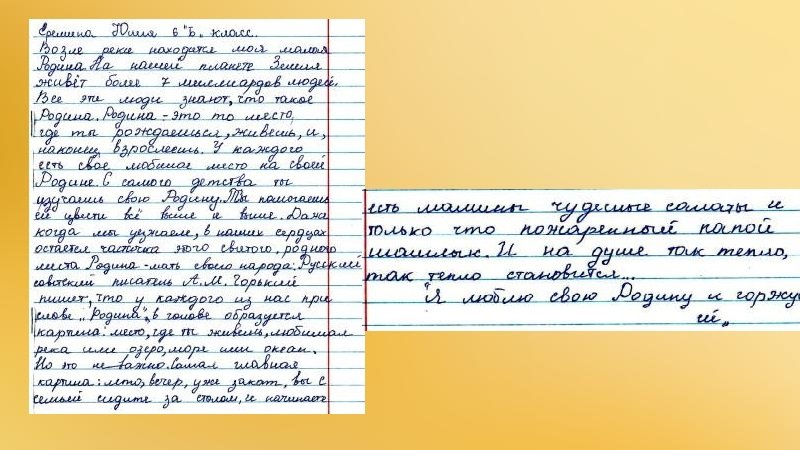 Еремина Юлия 6 "Ь" класс.
Возле реки находится моя малая
Родина. На нашей планете Земля
живёт более 7 миллиардов людей.
Все эти люди знают, что такое
Родина. Родина - это то место,
где ты рождаешься, живёшь, и,
наконец взрослеешь. У каждого
есть своё любимое место на своей
Родине. С самого детства ты
изучаешь свою Родину. Ты помогаешь
ей цвести всё выше и выше. Даже
когда мы уезжаем, в наших сердцах
остаётся частичка этого святого, родного
места Родина - мать своего народа. Русский
советский писатель А. М. Горький
пишет, что у каждого из нас при
слове "Родина", в голове образуется
картина: место, где ты живёшь, любимая
река или озеро, море или океан.
Но это не важно. Самая главная
картина: лето, вечер, уже закат, вы с
семьёй сидите за столом, и начинаете
есть мамины чудесные салаты и
только что пожаренный папой
шашлык. И на душе так тепло,
так тепло становится...
"Я люблю свою Родину и горжусь
ей"